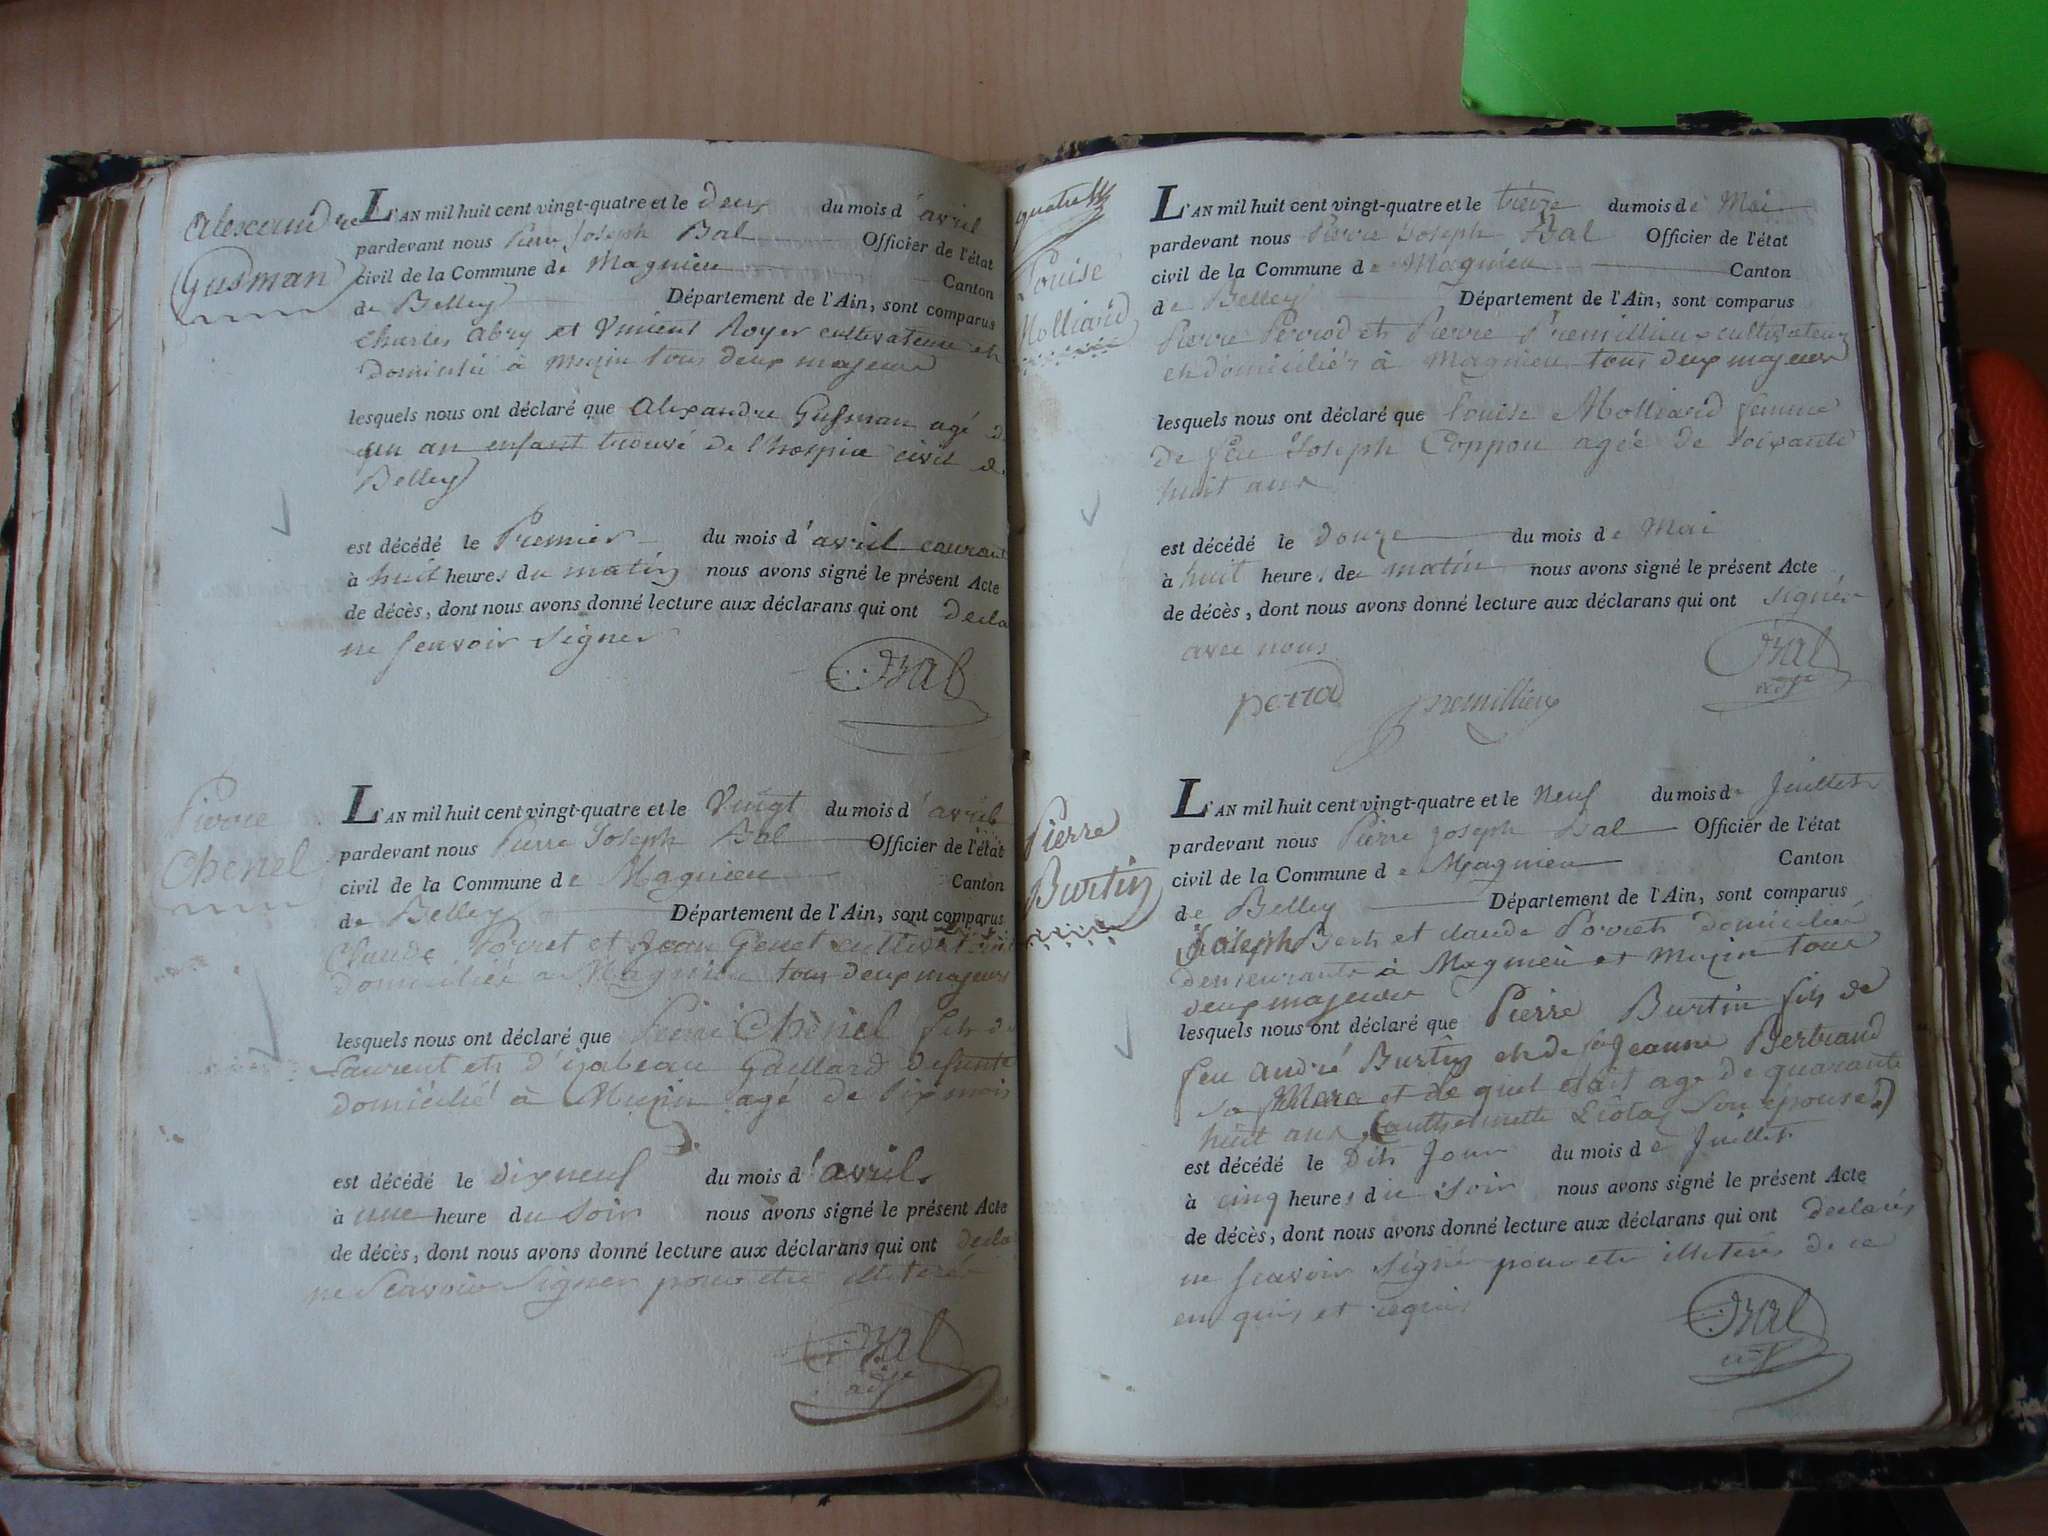 Alexandre
Gusman
L'AN mil huit cent vingt-quatre et le deux du mois d'avril
pardevant nous Pierre Joseph Bal Officier de l'état
civil de la Commune de Magnieu Canton
de Belley Département de l'Ain, sont comparus
Charles Abry et Vincent Royer cultivateurs et
domicilié à Muzin tous deux majeurs
lesquels nous ont déclaré que Alexandre Gusman agé d
un an enfant trouvé de l'hospice civil d
Belley
est décédé le Premier du mois d'avril courant
à huit heures du matin nous avons signé le présent Acte
de décès, dont nous avons donné lecture aux déclarans qui ont decla
ne scavoir signer
Bal
Pierre
Chenel
L'AN mil huit cent vingt-quatre et le Vingt du mois d'avril
pardevant nous Pierre Joseph Bal Officier de l'état
civil de la Commune de Magnieu Canton
de Belley Département de l'Ain, sont comparus
Claude Porret et Jean Genet
domicilié a Magnieu tous deux majeurs
lesquels nous ont déclaré que Chènel fils de
Laurent et d'izabeau Gaillard defunte
domicilié à Muzin agé de six mois
est décédé le dixneuf du mois d'avril
à une heure du soir nous avons signé le présent Acte
de décès, dont nous avons donné lecture aux déclarans qui ont decla
ne scavoir signer pour etre
Bal
adj
quatre
Louise
Molliard
L'AN mil huit cent vingt-quatre et le treize du mois de Mai
pardevant nous Pierre Joseph Bal Officier de l'état
civil de la Commune de Magnieu Canton
de Belley Département de l'Ain, sont comparus
Pierre Perrod et Pierre Premillieux cultivateurs
et domiciliés à Magnieu tous deux majeurs
lesquels nous ont déclaré que Louise Molliard femme
de feu Joseph Coppon agée de soixante
huit ans
est décédé le douze du mois de Mai
à huit heures de matin nous avons signé le présent Acte
de décès, dont nous avons donné lecture aux déclarans qui ont signés
avec nous
Bal
perrod premillieux
Pierre
Burtin
L'AN mil huit cent vingt-quatre et le neuf du mois de Juillet
pardevant nous Pierre Joseph Bal Officier de l'état
civil de la Commune de Magnieu Canton
de Belley Département de l'Ain, sont comparus
Joseph et claude Porret domicilié
demeurants à Magnieu et Muzin tous
deux majeurs
lesquels nous ont déclaré que Pierre Burtin fils de
feu andré Burtin et de Jeanne Bertrand
sa et de quel etait agé de quarante
huit ans son épouse
est décédé le dit Jour du mois de Juillet
à cinq heures du soir nous avons signé le présent Acte
de décès, dont nous avons donné lecture aux déclarans qui ont declarés
ne scavoir signé pour etre de ce
enquis et requis
Bal
adj